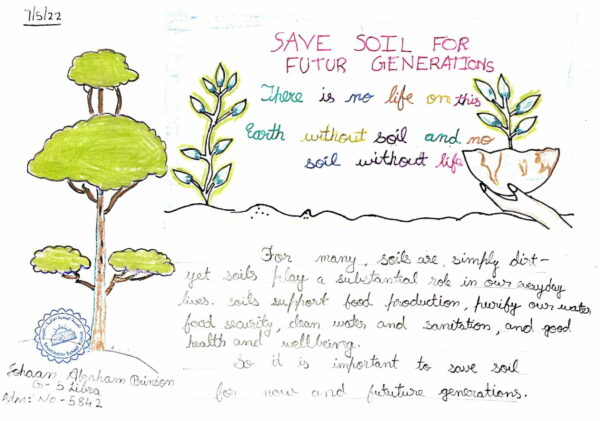 7/5/22
SAVE SOIL FOR
FUTUR GENERATIONS
There is no life on this
Earth without soil and no
soil without life
For many, soils are, simply dirt-
yet soils play a substantial role in our everyday
lives. soils support food production, purify our water,
food security, clean water and sanitation, and good
health and wellbeing.
So it is important to save soil
for now and fututure generations.
Abraham Brinson
Gr - 5 Libra
Adm: No - 5842